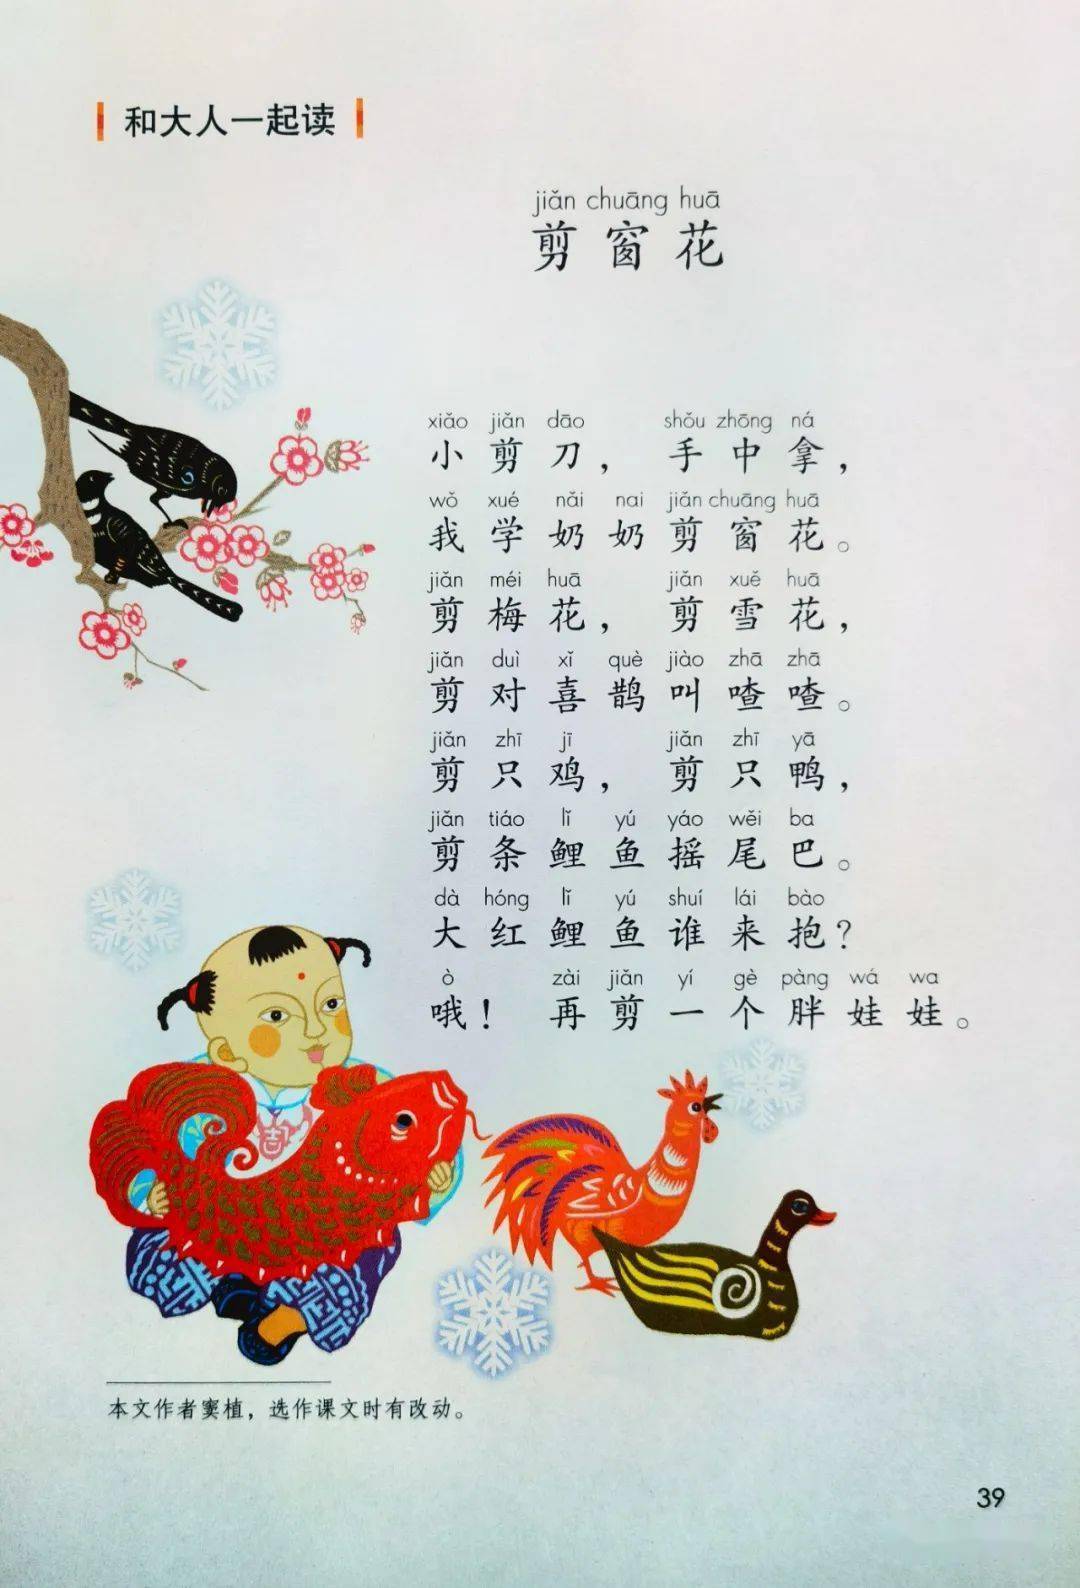 和大人一起读
jiǎn chuāng huā
剪窗花
xiǎo jiǎn dāo shǒu zhōng ná
小剪刀，手中拿，
wǒ xué nǎi nai jiǎn chuāng huā
我学奶奶剪窗花。
jiǎn méi huā jiǎn xuě huā
剪梅花，剪雪花，
jiǎn duì xǐ què jiào zhā zhā
剪对喜鹊叫喳喳。
jiǎn zhī jī jiǎn zhī yā
剪只鸡，剪只鸭，
jiǎn tiáo lǐ yú yáo wěi ba
剪条鲤鱼摇尾巴。
dà hóng lǐ yú shuí lái bào
大红鲤鱼谁来抱？
ò zài jiǎn yí gè pàng wá wa
哦！再剪一个胖娃娃。
吉
本文作者窦植，选作课文时有改动。
39